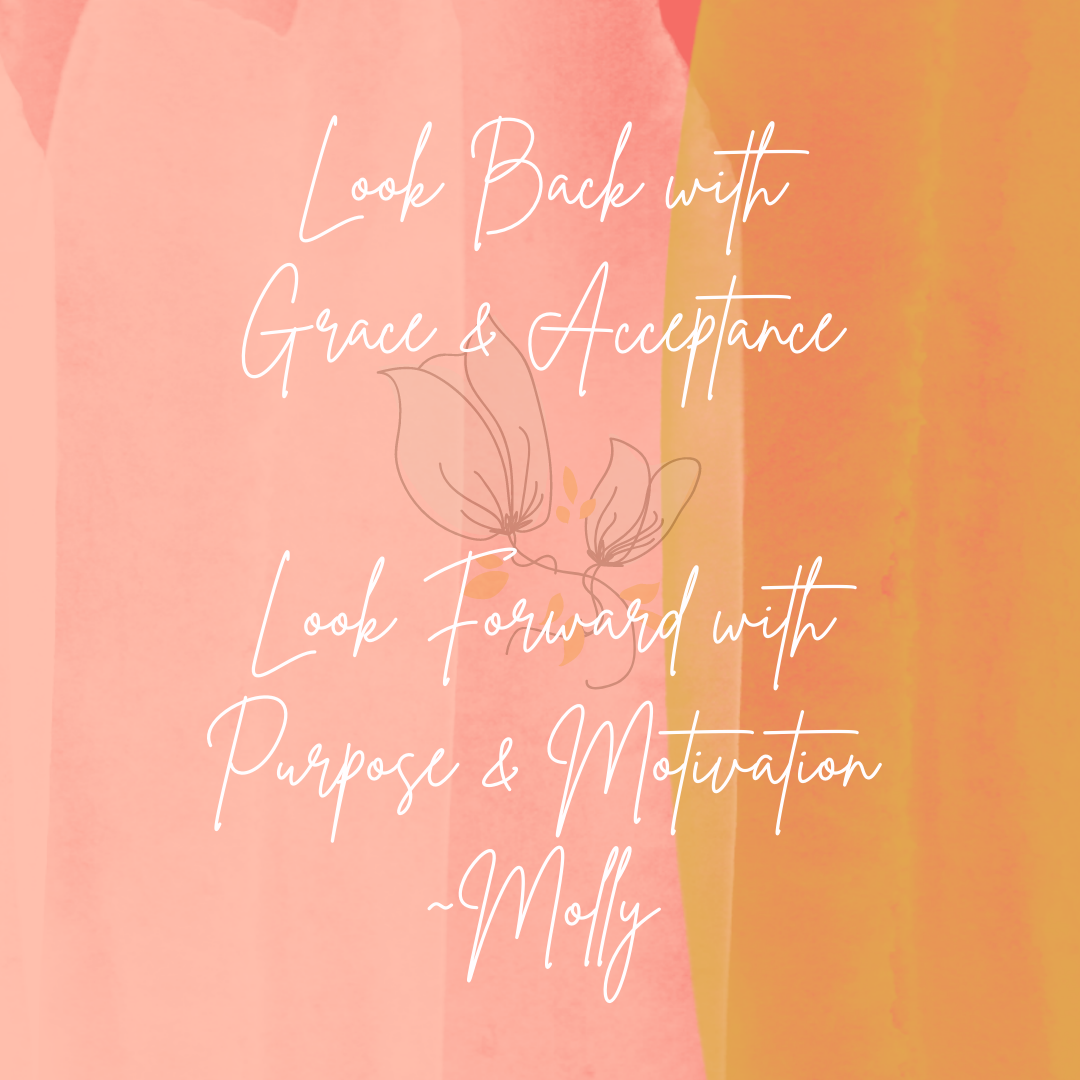 Look Back with
Grace & Acceptance
Look Forward with
Purpose & Motivation
~Molly